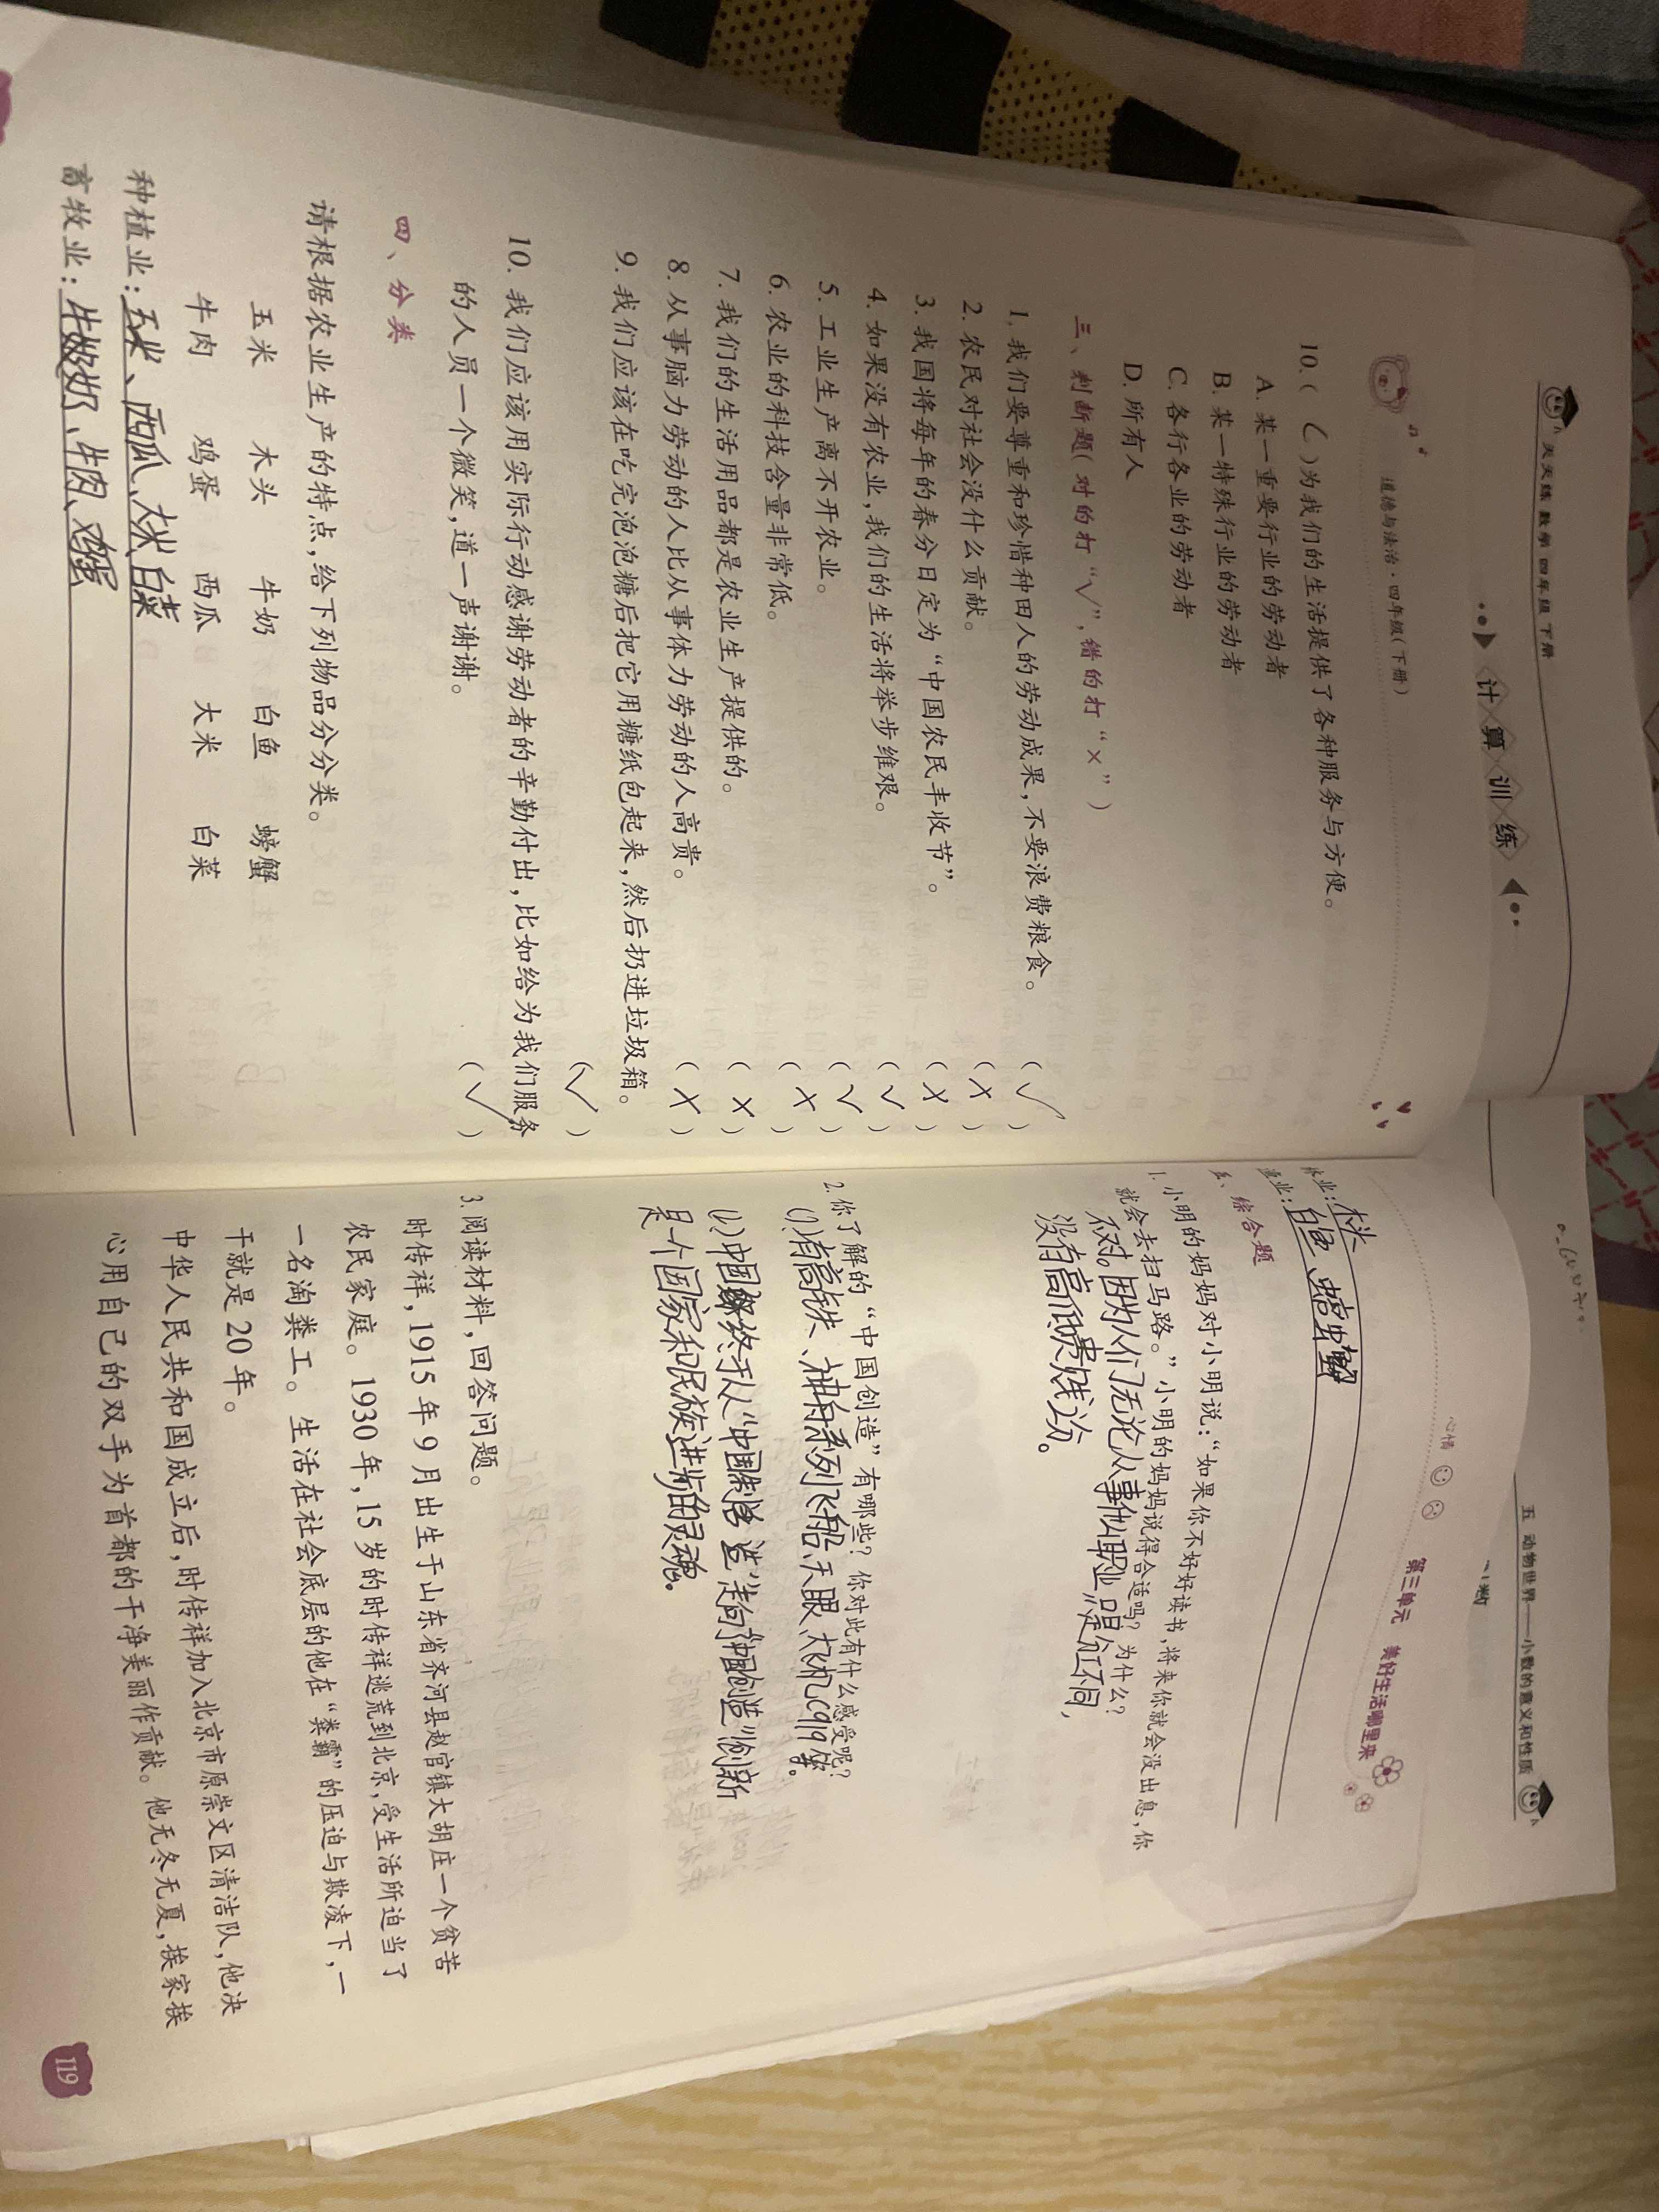 天天练 数学 四年级 下册
计算训练
道德与法治·四年级(下册)
10.( C )为我们的生活提供了各种服务与方便。
A. 某一重要行业的劳动者
B. 某一特殊行业的劳动者
C. 各行各业的劳动者
D. 所有人
三、判断题(对的打“√”,错的打“×”)
1. 我们要尊重和珍惜种田人的劳动成果,不要浪费粮食。 (√)
2. 农民对社会没什么贡献。 (×)
3. 我国将每年的春分日定为“中国农民丰收节”。 (×)
4. 如果没有农业,我们的生活将举步维艰。 (√)
5. 工业生产离不开农业。 (√)
6. 农业的科技含量非常低。 (×)
7. 我们的生活用品都是农业生产提供的。 (×)
8. 从事脑力劳动的人比从事体力劳动的人高贵。 (×)
9. 我们应该在吃完泡泡糖后把它用糖纸包起来,然后扔进垃圾箱。
(√)
10. 我们应该用实际行动感谢劳动者的辛勤付出,比如给为我们服务
的人员一个微笑,道一声谢谢。 (√)
四、分类
请根据农业生产的特点,给下列物品分分类。
玉米 木头 牛奶 白鱼 螃蟹
牛肉 鸡蛋 西瓜 大米 白菜
种植业:玉米、西瓜、大米、白菜
畜牧业:牛奶、牛肉、鸡蛋
五 动物世界——小数的意义和性质
心情
第三单元 美好生活哪里来
林业:木头
渔业:白鱼、螃蟹
五、综合题
1. 小明的妈妈对小明说:“如果你不好好读书,将来你就会没出息,你
就会去扫马路。”小明的妈妈说得合适吗?为什么?
不对。因为人们无论从事什么职业,只是分工不同,
没有高低贵贱之分。
2. 你了解的“中国创造”有哪些?你对此有什么感受呢?
(1)有高铁、神舟系列飞船、天眼、大飞机C919等。
(2)中国终于从“中国制造”走向“中国创造”,创新
是一个国家和民族进步的灵魂。
3. 阅读材料,回答问题。
时传祥,1915年9月出生于山东省齐河县赵官镇大胡庄一个贫苦
农民家庭。1930年,15岁的时传祥逃荒到北京,受生活所迫当了
一名淘粪工。生活在社会底层的他在“粪霸”的压迫与欺凌下,一
干就是20年。
中华人民共和国成立后,时传祥加入北京市原崇文区清洁队,他决
心用自己的双手为首都的干净美丽作贡献。他无冬无夏,挨家挨
119